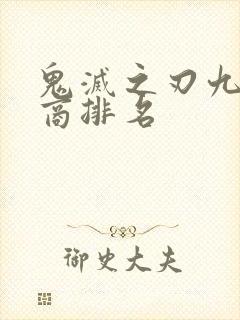 鬼滅之刃九
商排名
御史大夫